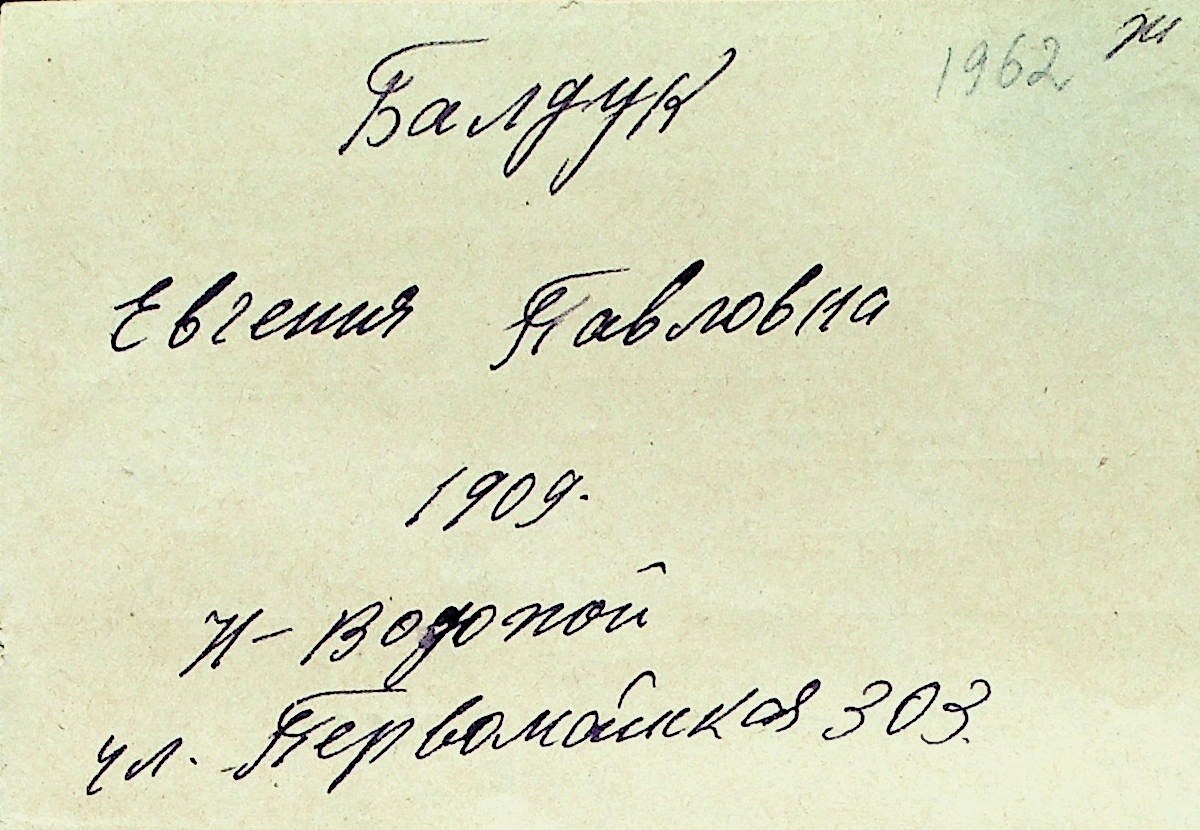 1962 ж
Балдук
Евгения Павловна
1909.
Н-Водопой
ул. Первомайская 303.